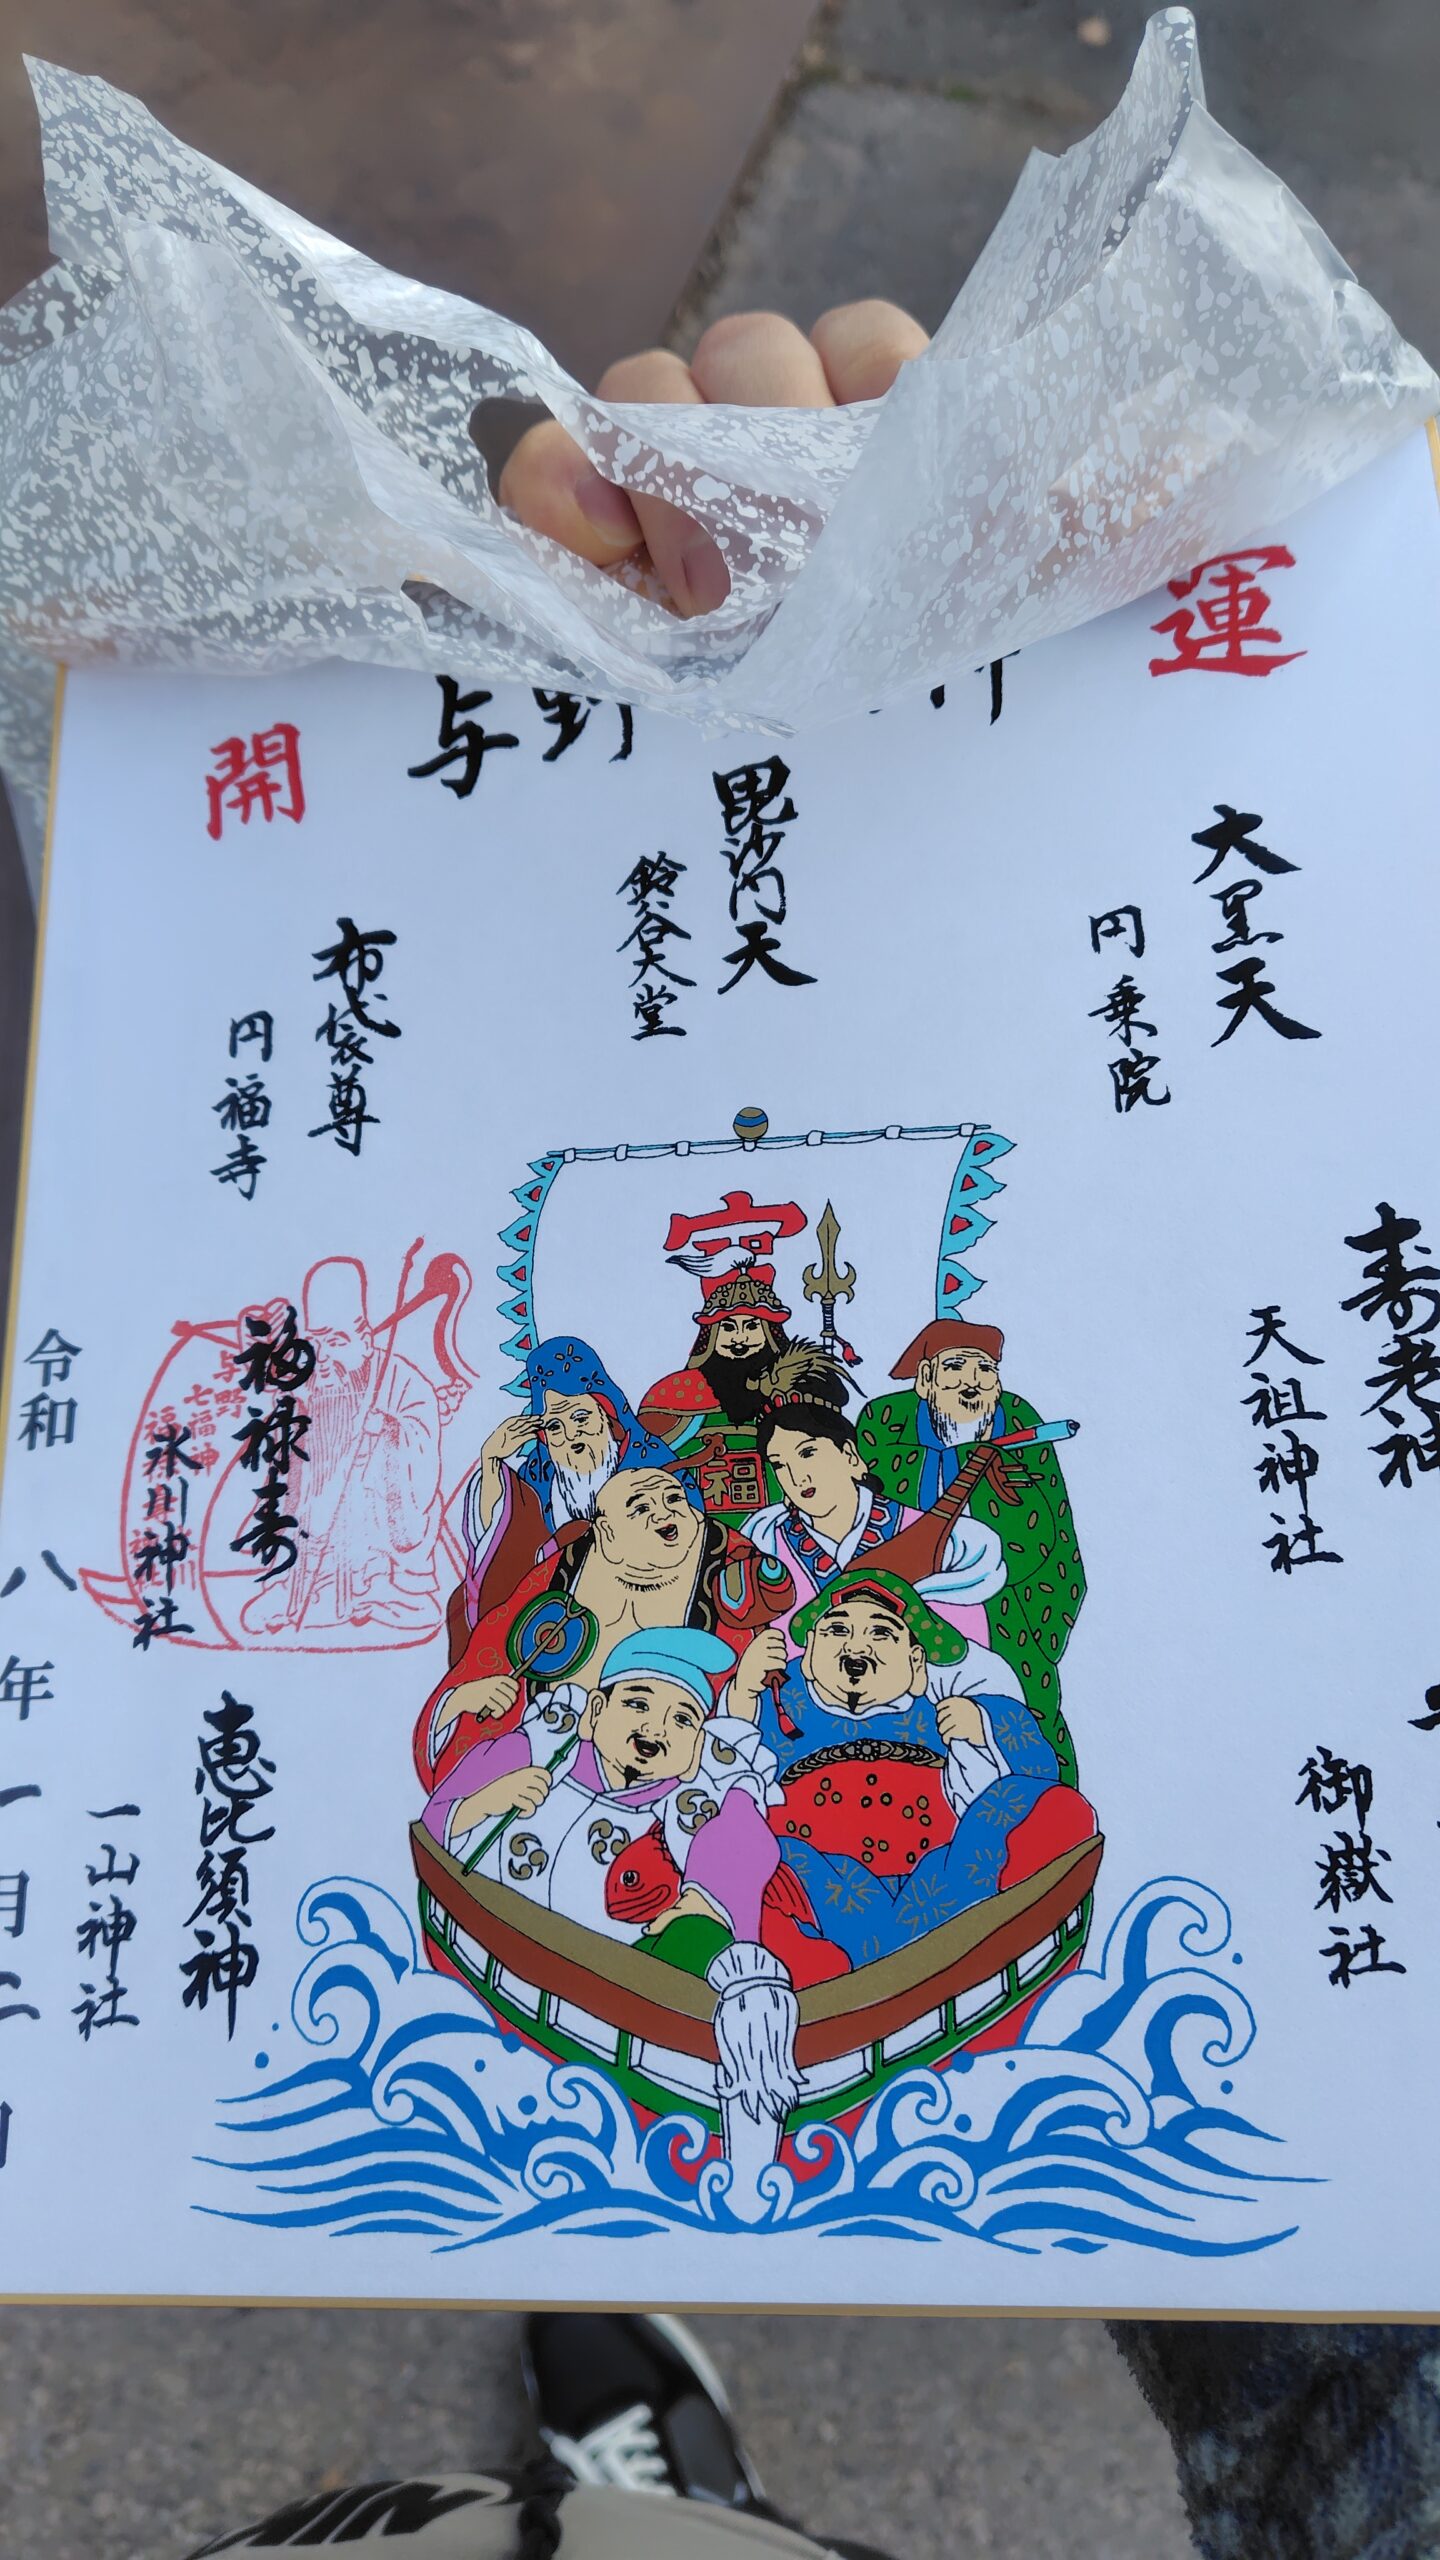 開
運
与野
大黒天
円乗院
毘沙門天
鈴谷大堂
布袋尊
円福寺
寿老神
天祖神社
福禄寿
氷川神社
与野
七福神
御嶽社
恵比須神
一山神社
令和八年一月二
福